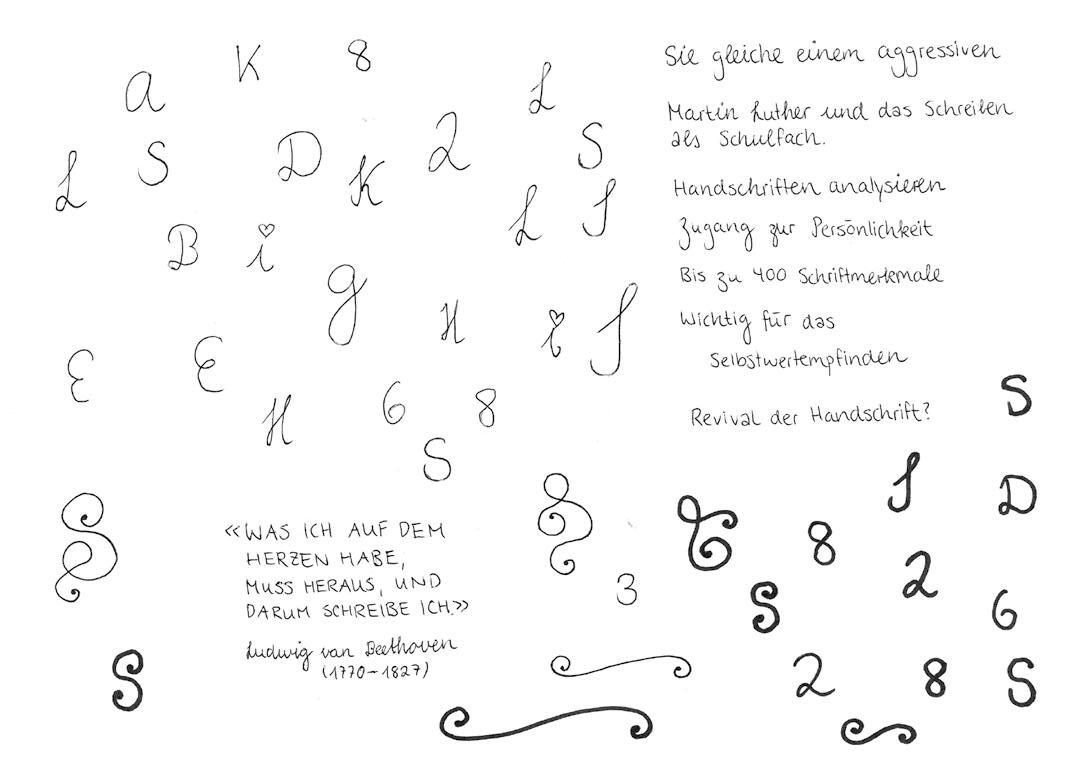 K 8
a L
S D 2 S
L K
L S
B i
g
H i S
E E
H 6 8
S
Sie gleiche einem aggressiven
Martin Luther und das Schreiben
als Schulfach.
Handschriften analysieren
Zugang zur Persönlichkeit
Bis zu 400 Schriftmerkmale
Wichtig für das
Selbstwertempfinden
Revival der Handschrift?
«WAS ICH AUF DEM
HERZEN HABE,
MUSS HERAUS, UND
DARUM SCHREIBE ICH.»
Ludwig van Beethoven
(1770–1827)
S
3
S
S D
8
2
S 6
2 8 S